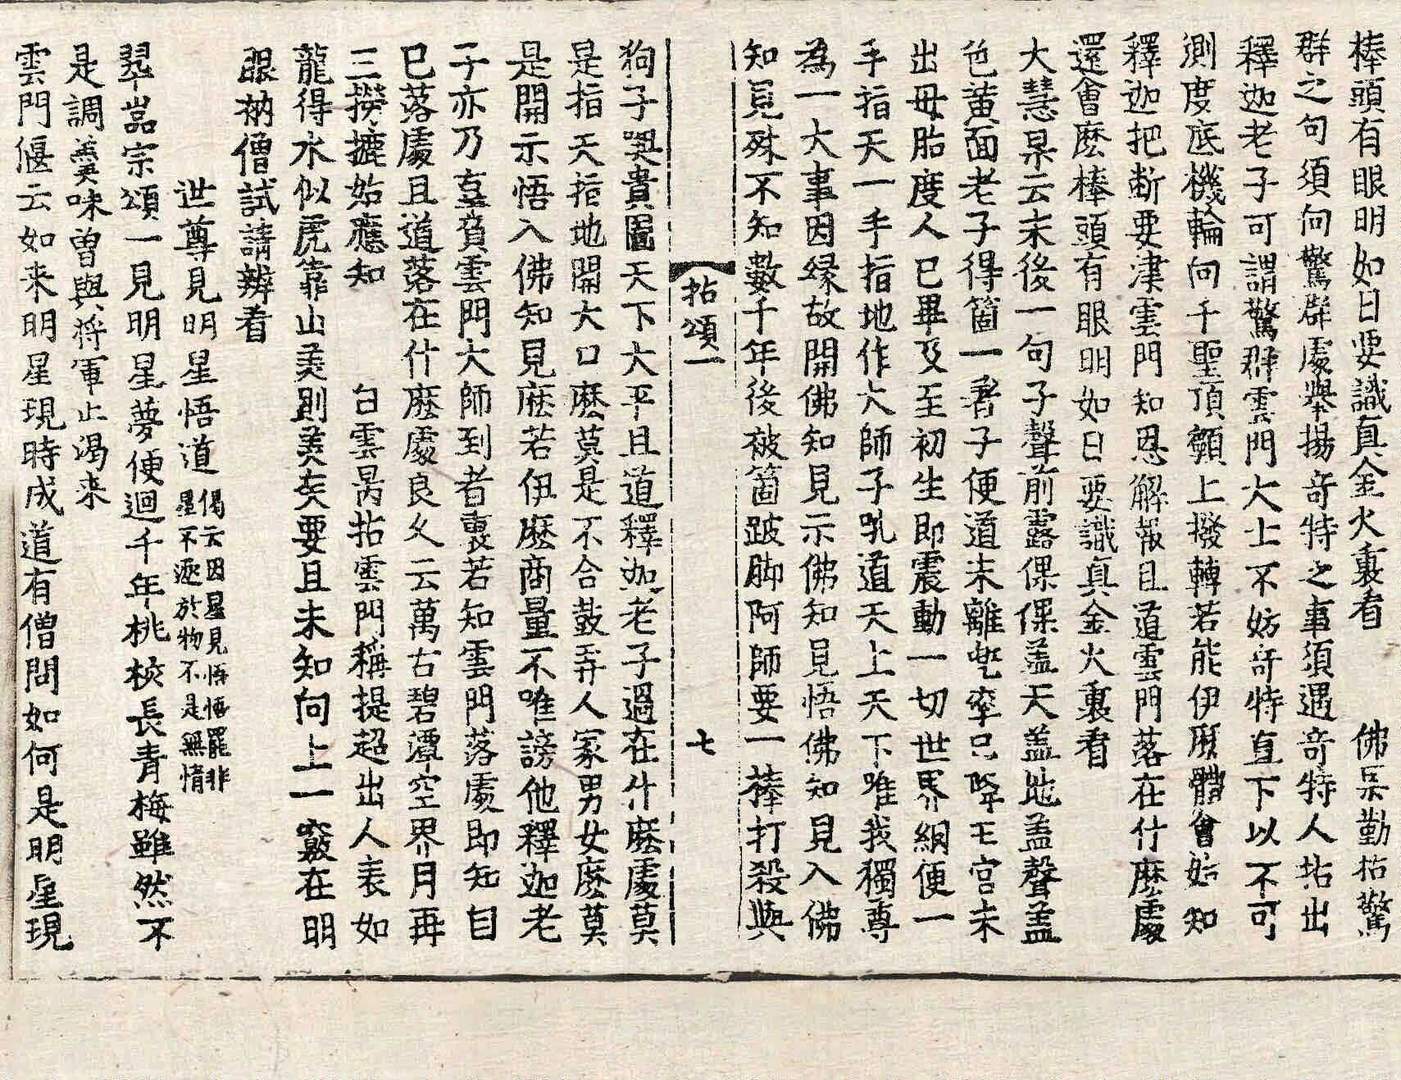 棒頭有眼明如日要識真金火裏看　佛杲勤拈驚
群之句須向驚群處舉揚奇特之事須遇奇特人拈出
釋迦老子可謂驚群雲門大士不妨奇特直下以不可
測度底機輪向千聖頂𩕳上撥轉若能伊麽體會始知
釋迦把斷要津雲門知恩解報且道雲門落在什麽處
還會麽棒頭有眼明如日要識真金火裏看
大慧杲云末後一句子聲前露倮倮盖天盖地盖聲盖
色黄面老子得箇一著子便道未離兜率已降王宫未
出母胎度人已畢及至初生即震動一切世界綱便一
手指天一手指地作大師子吼道天上天下唯我獨尊
為一大事因緣故開佛知見示佛知見悟佛知見入佛
知見殊不知數千年後被箇跛脚阿師要一棒打殺與
拈頌一　七
狗子喫貴圖天下大平且道釋迦老子過在什麽處莫
是指天指地開大口麽莫是不合鼓弄人家男女麽莫
是開示悟入佛知見麽若伊麽商量不唯謗他釋迦老
子亦乃孤負雲門大師到者裏若知雲門落處即知自
已落處且道落在什麽處良久云萬古碧潭空界月再
三撈摝始應知　白雲昺拈雲門稱提超出人表如
龍得水似虎靠山美則美矣要且未知向上一竅在明
眼衲僧試請辨看
世尊見明星悟道偈云因星見悟悟罷非
星不逐於物不是無情
翠嵓宗頌一見明星夢便迴千年桃核長青梅雖然不
是調羹味曾與將軍止渴来
雲門偃云如来明星現時成道有僧問如何是明星現